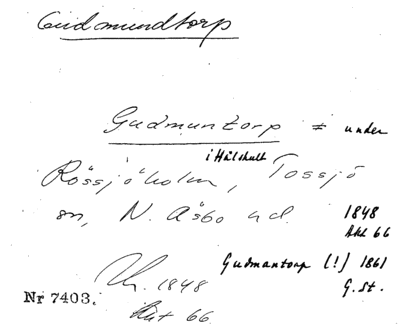 Gudmundtorp
Gudmuntorp = under
i Hålshult
Rössjöholm, Tossjö
sn, N. Åsbo hd.
1848
Akt 66
Gudmantorp (!) 1861
G.St.
1848
Akt 66
Nr 7403.